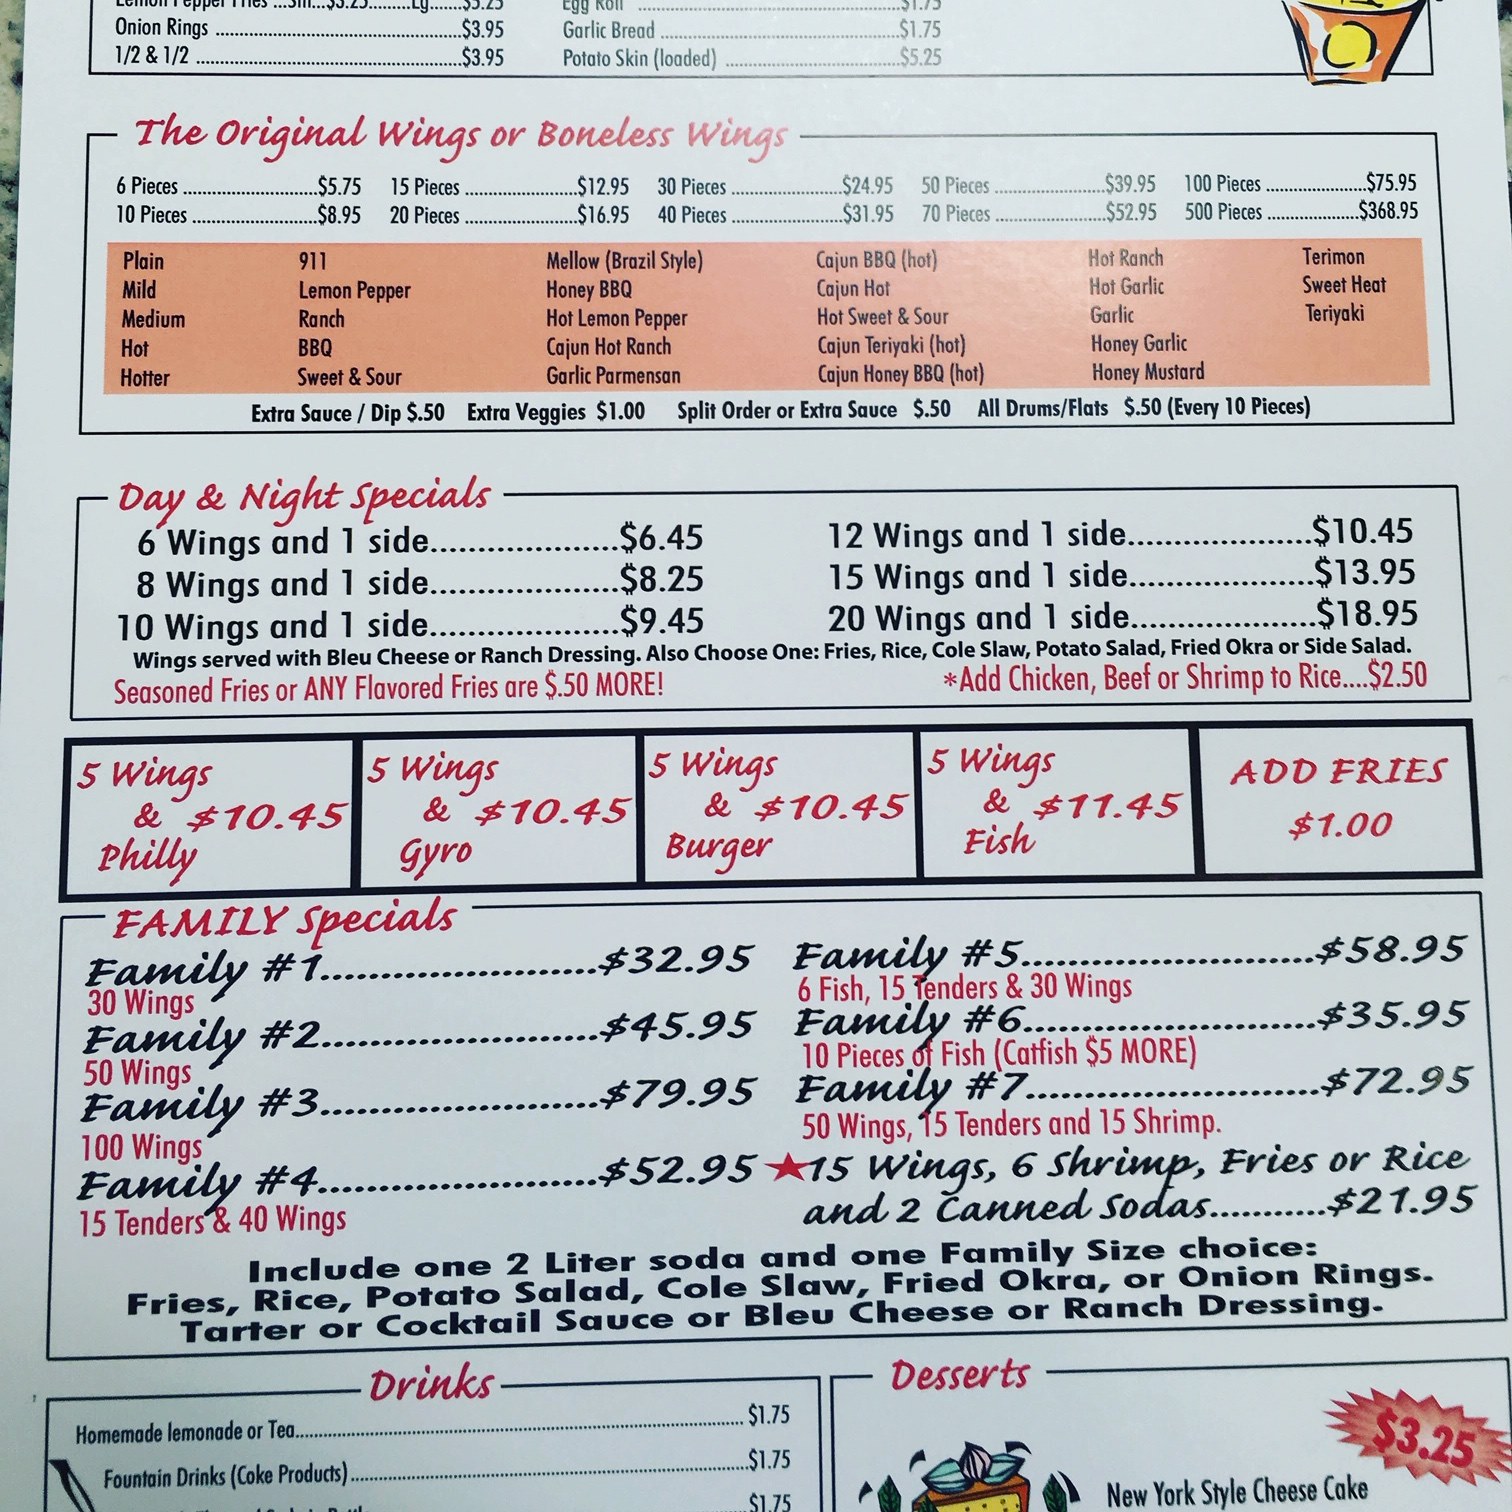 Lemon Pepper Fries ...Sm...$3.25.........Lg......$5.25
Onion Rings ..........$3.95
1/2 & 1/2 ..........$3.95
Egg Roll ..........$1.75
Garlic Bread ..........$1.75
Potato Skin (loaded) ..........$5.25
The Original Wings or Boneless Wings
6 Pieces ..........$5.75 15 Pieces ..........$12.95 30 Pieces ..........$24.95 50 Pieces ..........$39.95 100 Pieces ..........$75.95
10 Pieces ..........$8.95 20 Pieces ..........$16.95 40 Pieces ..........$31.95 70 Pieces ..........$52.95 500 Pieces ..........$368.95
Plain 911 Mellow (Brazil Style) Cajun BBQ (hot) Hot Ranch Terimon
Mild Lemon Pepper Honey BBQ Cajun Hot Hot Garlic Sweet Heat
Medium Ranch Hot Lemon Pepper Hot Sweet & Sour Garlic Teriyaki
Hot BBQ Cajun Hot Ranch Cajun Teriyaki (hot) Honey Garlic
Hotter Sweet & Sour Garlic Parmensan Cajun Honey BBQ (hot) Honey Mustard
Extra Sauce / Dip $.50 Extra Veggies $1.00 Split Order or Extra Sauce $.50 All Drums/Flats $.50 (Every 10 Pieces)
Day & Night Specials
6 Wings and 1 side..........$6.45 12 Wings and 1 side..........$10.45
8 Wings and 1 side..........$8.25 15 Wings and 1 side..........$13.95
10 Wings and 1 side..........$9.45 20 Wings and 1 side..........$18.95
Wings served with Bleu Cheese or Ranch Dressing. Also Choose One: Fries, Rice, Cole Slaw, Potato Salad, Fried Okra or Side Salad.
Seasoned Fries or ANY Flavored Fries are $.50 MORE! *Add Chicken, Beef or Shrimp to Rice....$2.50
5 Wings
& $10.45
Philly
5 Wings
& $10.45
Gyro
5 Wings
& $10.45
Burger
5 Wings
& $11.45
Fish
ADD FRIES
$1.00
FAMILY Specials
Family #1..........$32.95
30 Wings
Family #2..........$45.95
50 Wings
Family #3..........$79.95
100 Wings
Family #4..........$52.95
15 Tenders & 40 Wings
Family #5..........$58.95
6 Fish, 15 Tenders & 30 Wings
Family #6..........$35.95
10 Pieces of Fish (Catfish $5 MORE)
Family #7..........$72.95
50 Wings, 15 Tenders and 15 Shrimp.
★15 Wings, 6 Shrimp, Fries or Rice
and 2 Canned Sodas..........$21.95
Include one 2 Liter soda and one Family Size choice:
Fries, Rice, Potato Salad, Cole Slaw, Fried Okra, or Onion Rings.
Tarter or Cocktail Sauce or Bleu Cheese or Ranch Dressing.
Drinks
Homemade lemonade or Tea..........$1.75
Fountain Drinks (Coke Products)..........$1.75
$1.75
Desserts
$3.25
New York Style Cheese Cake